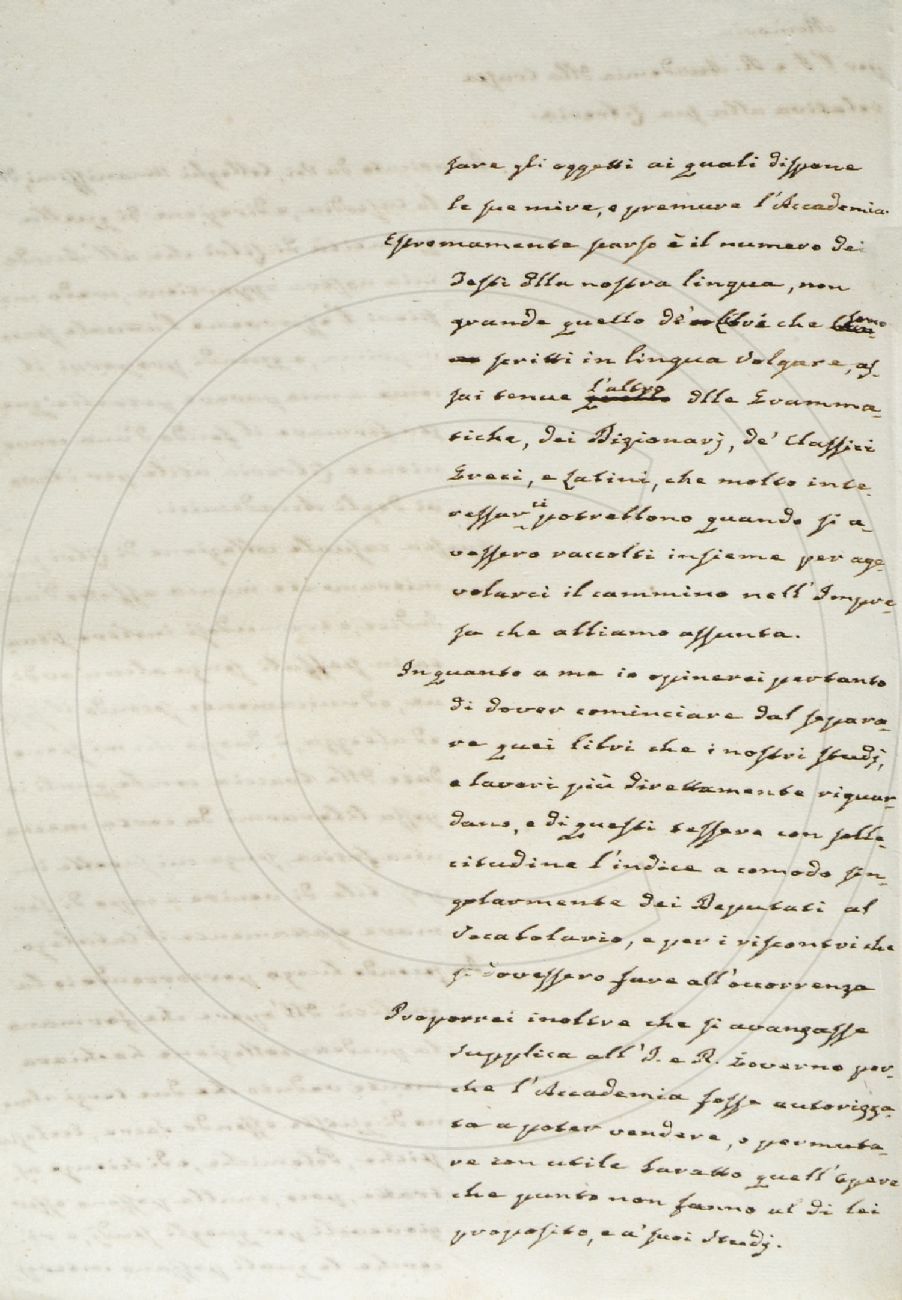 fare gli oggetti ai quali dispone
le sue mire, e premure l'Accademia.
Estremamente scarso è il numero dei
Testi della nostra lingua, non
grande quello de' libri che sono
scritti in lingua Volgare, as-
sai tenue l'altro delle Gramma-
tiche, dei Dizionarj, de' Classici
Greci, e Latini, che molto inte-
ressarci potrebbono quando si a-
vessero raccolti insieme per age-
volarci il cammino nell'Impre-
sa che abbiamo assunta.
In quanto a me io opinerei pertanto
di dover cominciare dal separa-
re quei libri che i nostri studj,
e lavori più direttamente riguar-
dano, e di questi tessere con solle-
citudine l'indice a comodo sin-
golarmente dei Deputati al
Vocabolario, e per i riscontri che
si dovessero fare all'occorrenza
Proporrei inoltre che si avanzasse
supplica all'I. e R. Governo per-
che l'Accademia fosse autorizza-
ta a poter vendere, o permuta-
re con utile baratto quell'Opere
che punto non fanno al di lei
proposito, e a' suoi studj.